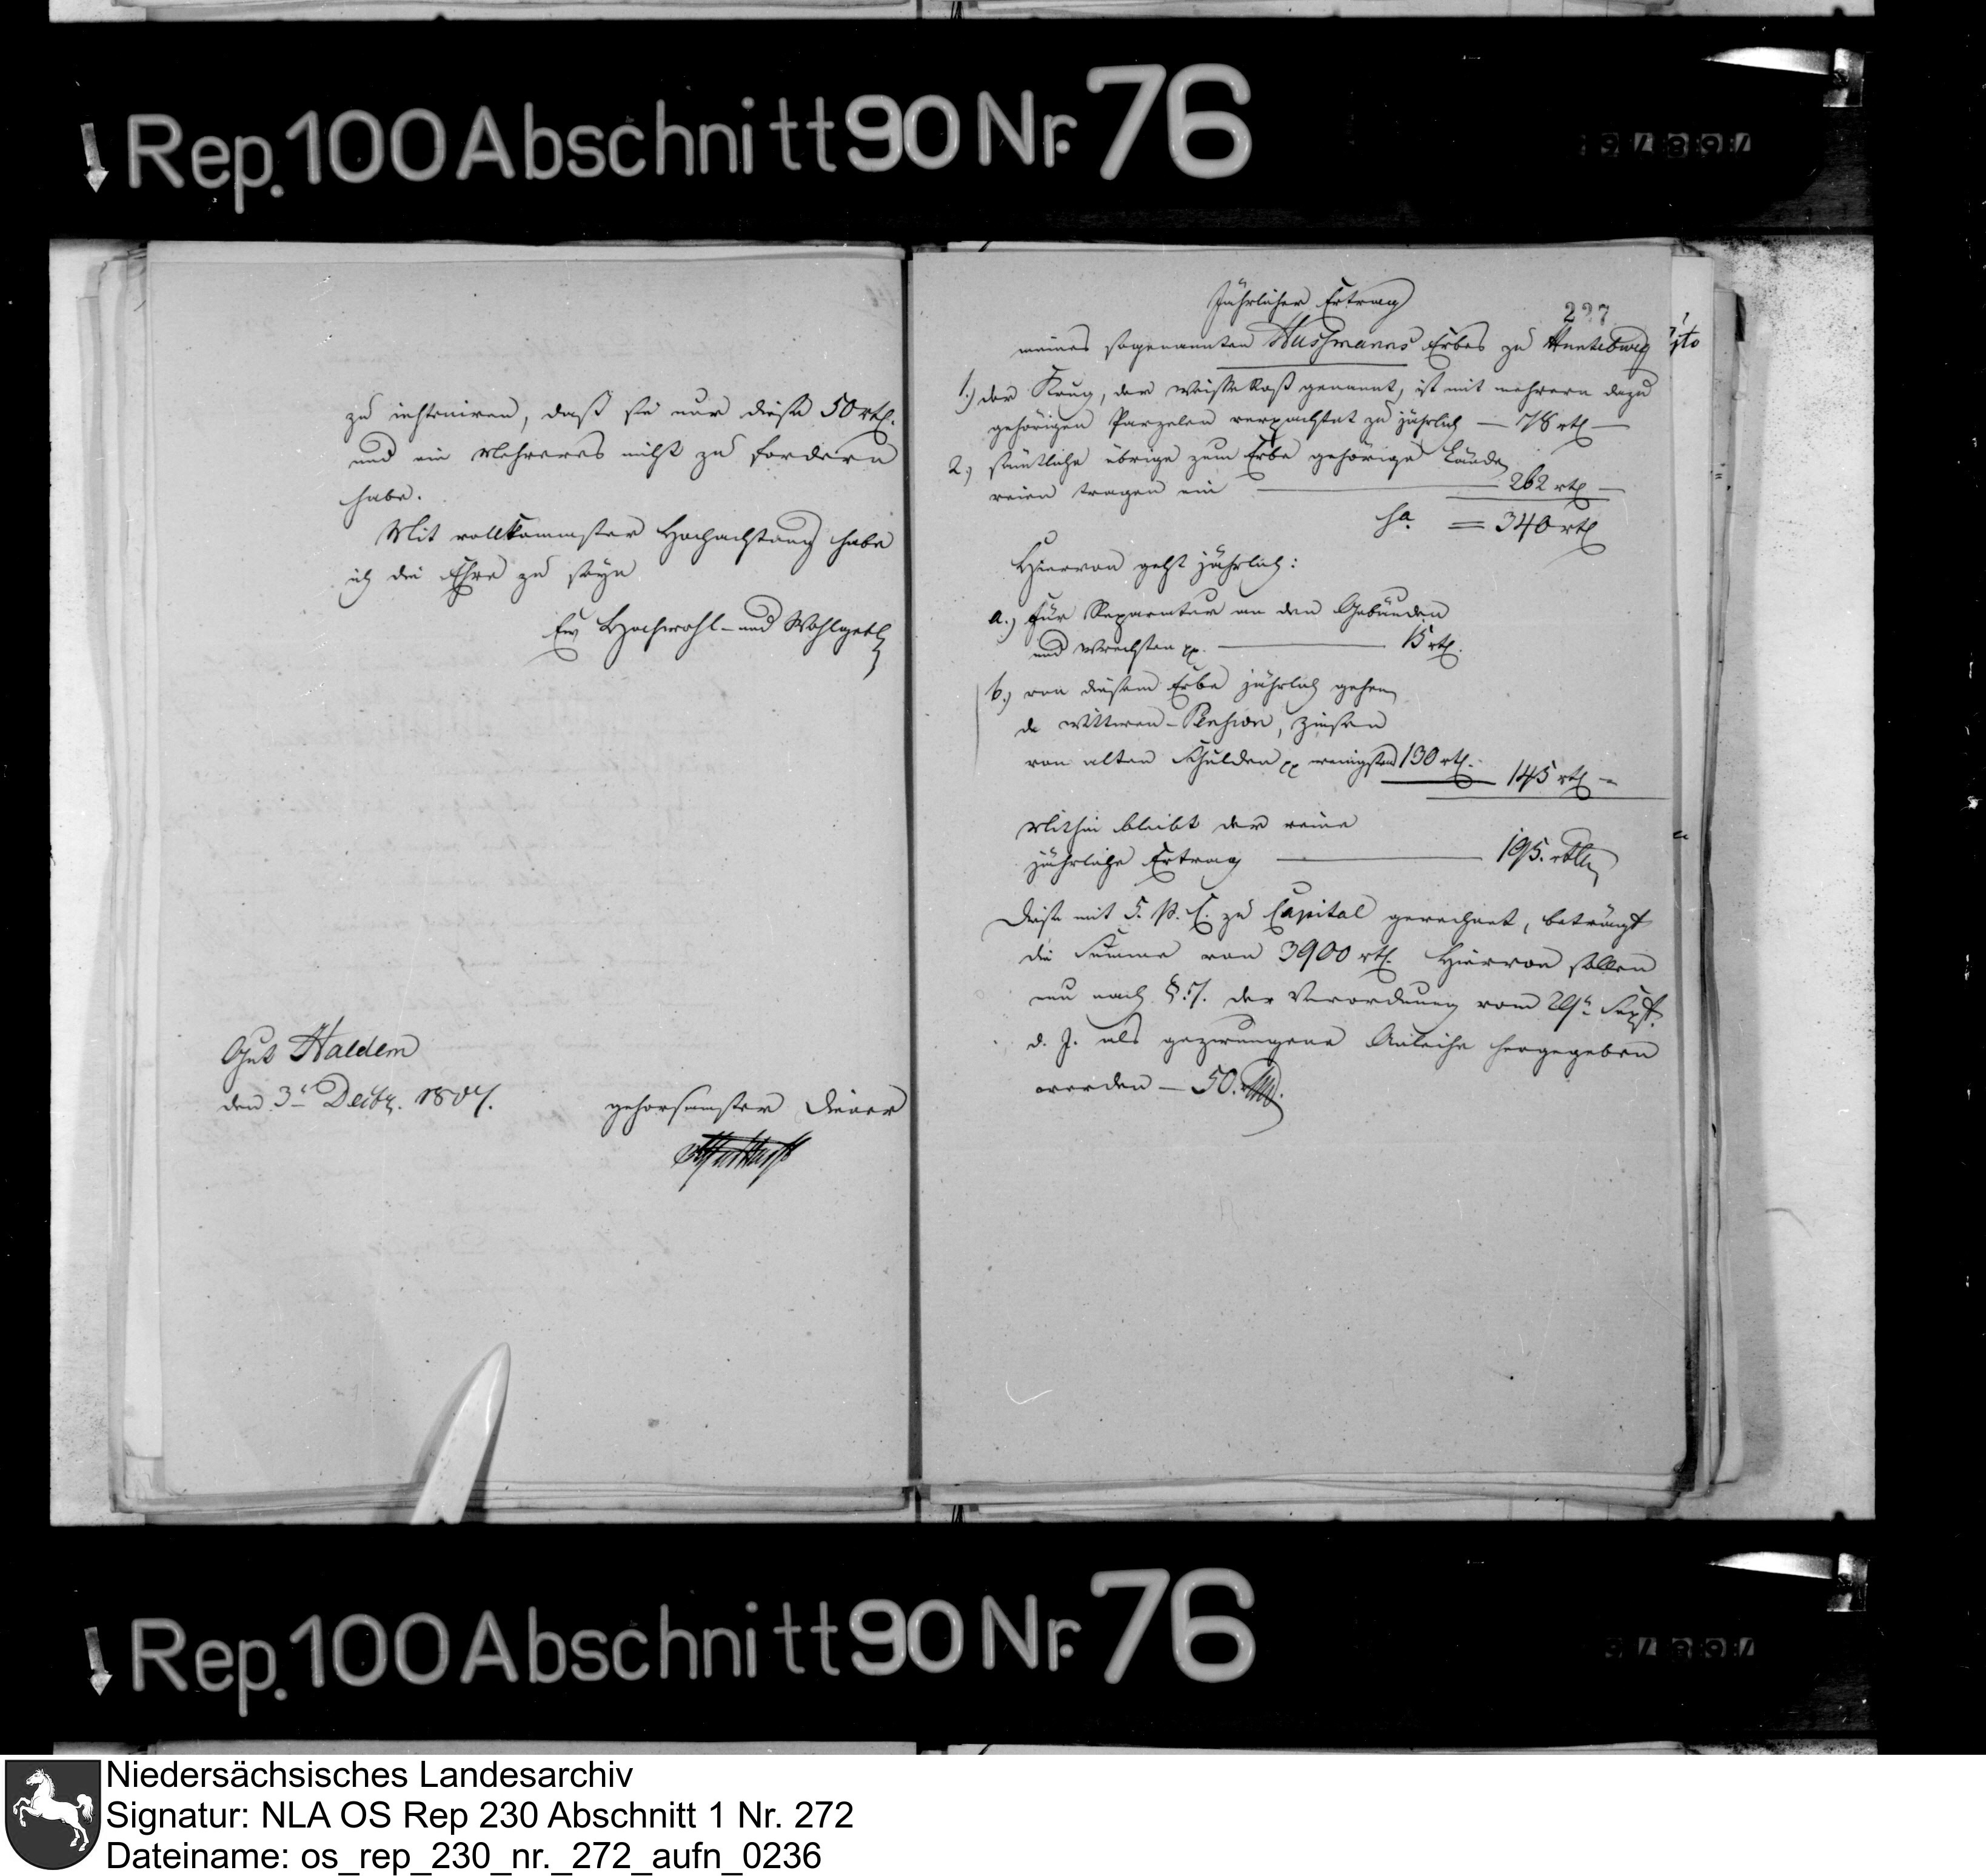 Rep. 100 Abschnitt 90 Nr. 76
zu instruiren, daß sie nur diese 50 rtl.
und ein Mehreres nicht zu fordern
habe.
Mit vollkommster Hochachtung habe
ich die Ehre zu seyn
Ew Hochwohl- und Wohlgeb
Gut Haldem
den 3t Decbr. 1807.
gehorsamster Diener
227
Jährlicher Ertrag
meines sogenannten Hussmanns Erbes zu Hunteburg
1.) der Krug, der weisse Roß genannt, ist mit mehrern dazu
gehörigen Parzelen verpachtet zu jährlich — 78 rtl —
2.) sämtliche übrige zum Erbe gehörige Lände
reien tragen ein — 262 rtl —
Sa. = 340 rtl
Hiervon geht jährlich:
a.) für Reparatur an den Gebäuden
und pp. — 15 rtl.
b.) von diesem Erbe jährlich gehen
de Wittwen-Pension, Zinsen
von alten Schulden pp wenigstens 130 rtl. 145 rtl —
Mithin bleibt der reine
jährliche Ertrag — 195. rtlr
Diese mit 5. p. C. zu Capital gerechnet, beträgt
die Summe von 3900 rtl. Hiervon sollen
nun nach §. 7. der Verordnung vom 29n Sept.
d. J. als gezwungene Anleihe hergegeben
werden — 50. rtlr.
Rep. 100 Abschnitt 90 Nr. 76
Niedersächsisches Landesarchiv
Signatur: NLA OS Rep 230 Abschnitt 1 Nr. 272
Dateiname: os_rep_230_nr._272_aufn_0236